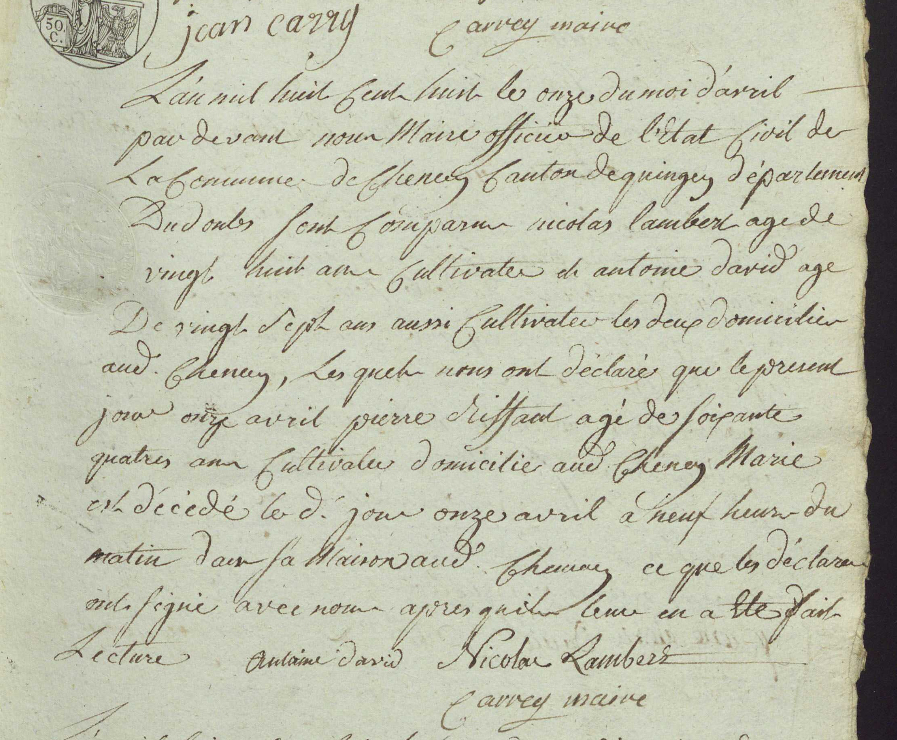 50
C.
jean carry Carrey maire
L'an mil huit Cent huit le onze du moi d'avril
par devant nous Maire officier de l'Etat Civil de
La Commune de Cheney Canton de quingey département
Du doubs sont Comparus nicolas lambert age de
vingt huit ans Cultivateur et antoine david age
De vingt sept ans aussi Cultivateur les deux domiciliés
aud. Cheney, Lesquels nous ont déclaré que le present
jour onze avril pierre age de soixante
quatres ans Cultivateur domicilié aud. Cheney Marie
est décédé le d. jour onze avril à neuf heure du
matin dans sa Maison aud. Cheney ce que les déclarans
ont signé avec nous apres quil leur en a été fait
Lecture antoine david Nicolas Lambert
Carrey maire